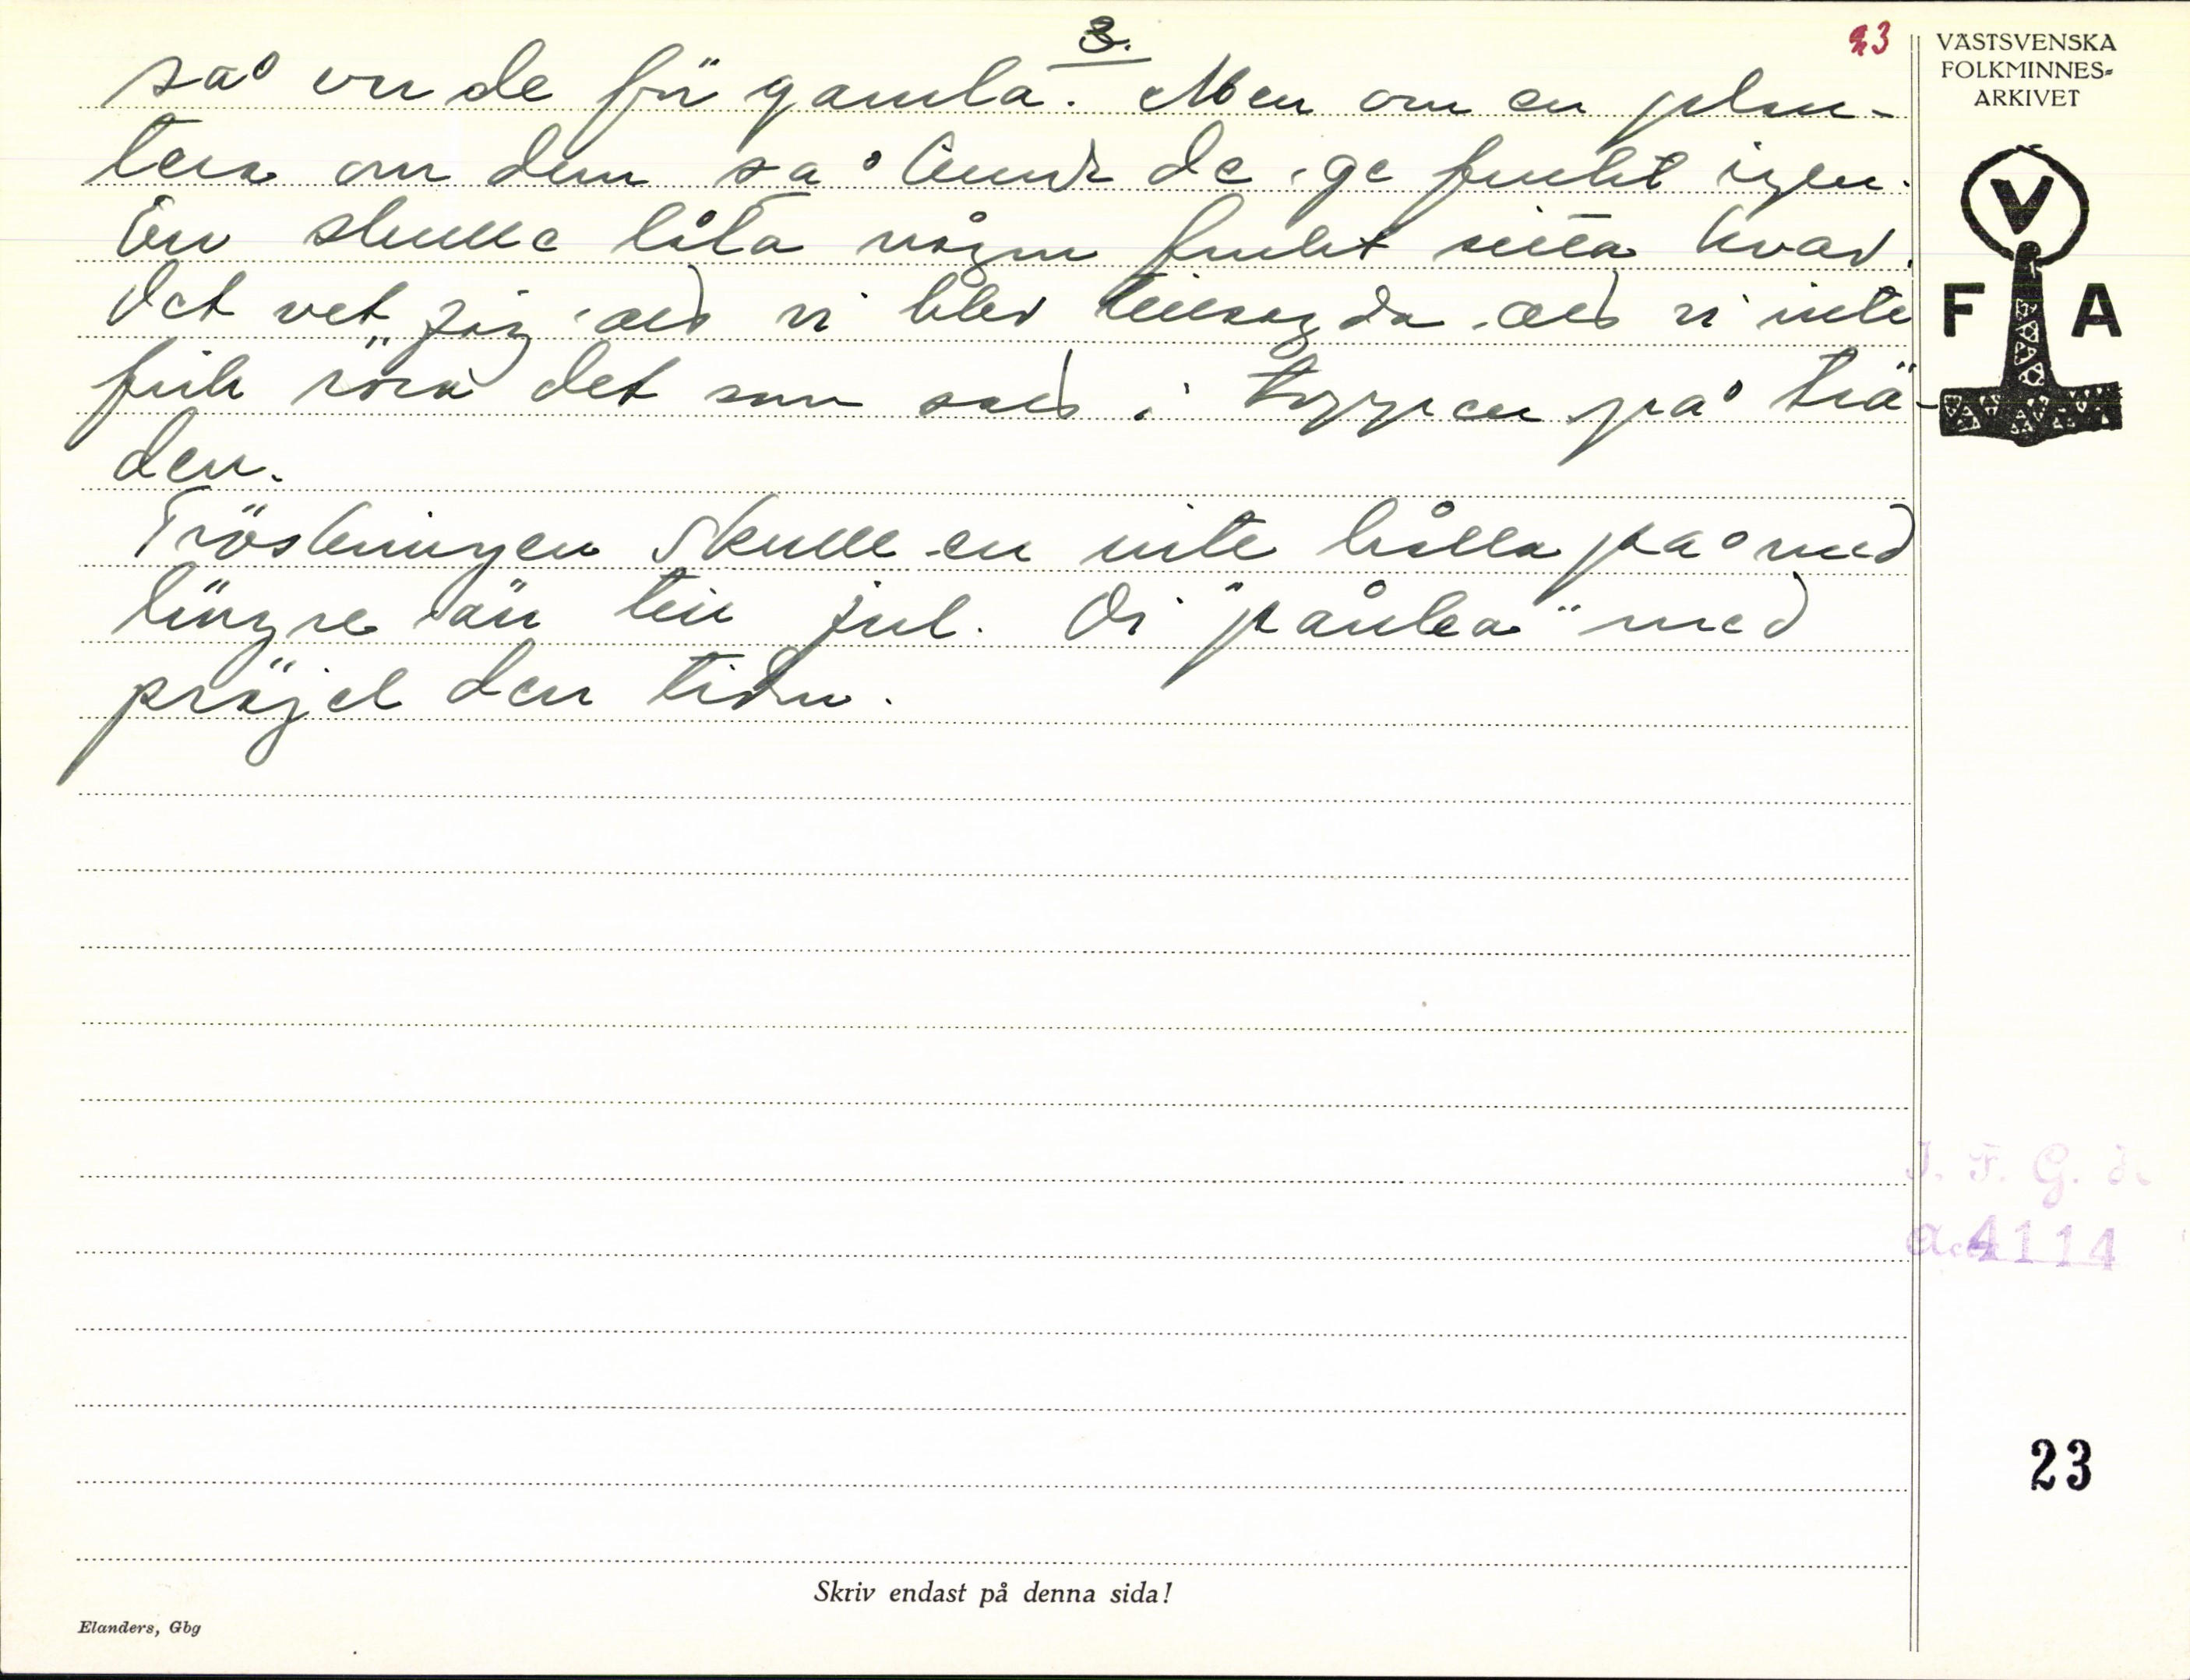 3.
23
så vu de för gamla. Men om en plan-
tera om dem så kunde de ge frukt igen.
En skulle låta någon frukt sitta kvar.
Det vet jag att vi blev tillsagda att vi inte
fick röra det som satt i toppen på trä-
den.
Tröskningen skulle en inte hålla på med
längre än till jul. Di "pånka" med
pröjel den tiden.
VÄSTSVENSKA
FOLKMINNES-
ARKIVET
V
F A
I. F. G. 
Acc. 4114
23
Skriv endast på denna sida!
Elanders, Gbg